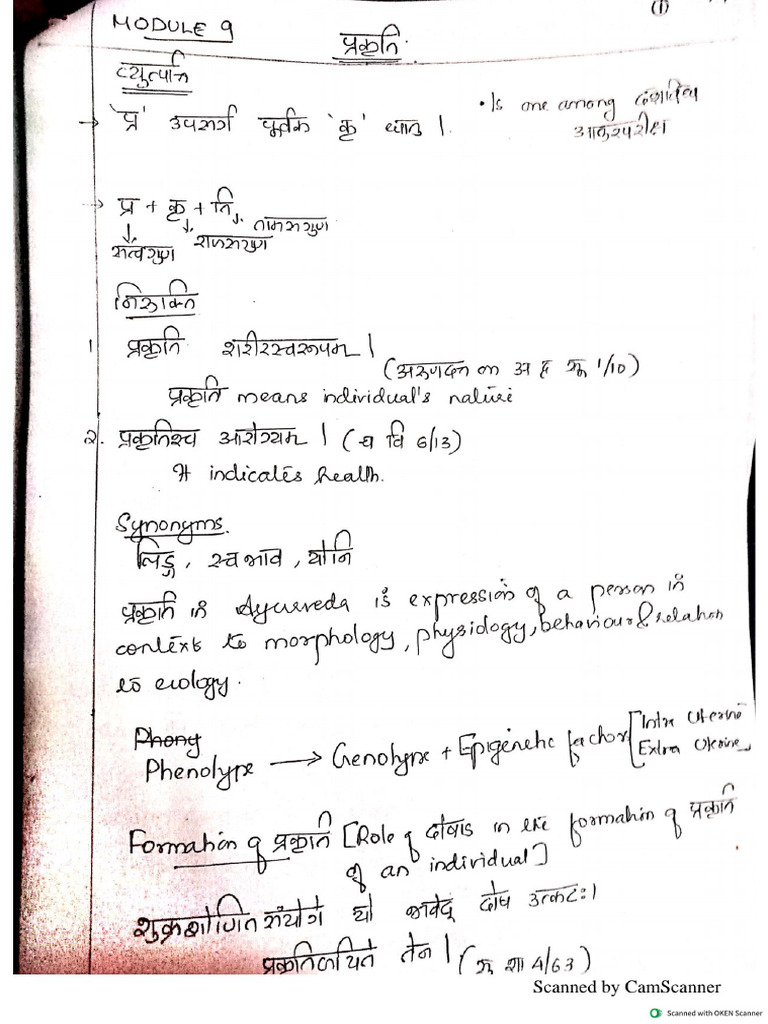 (1)
MODULE 9
प्रकृति
व्युत्पत्ति
→ 'प्र' उपसर्ग पूर्वक 'कृ' धातु ।
• Is one among दशविध
आतुरपरीक्ष
→ प्र + कृ + ति
सत्वगुण राजसगुण तामसगुण
निरुक्ति
1 प्रकृति शरीरस्वरूपम् । (अरुणदत्त on अ हृ सू 1/10)
प्रकृति means individual's nature
2. प्रकृतिश्च आरोग्यम । (च वि 6/13)
It indicates health.
Synonyms.
लिङ्ग, स्वभाव, योनि
प्रकृति in Ayurveda is expression of a person in
context to morphology, physiology, behaviour & relation
to ecology.
Phony
Phenotype → Genotype + Epigenetic factor [Intra Uterine
Extra Uterine
Formation of प्रकृति [Role of दोषाs in the formation of प्रकृति
of an individual]
शुक्रशोणित संयोगे यो भवेद् दोष उत्कटः।
प्रकृतिर्जायते तेन । (सु शा 4/63)
Scanned by CamScanner
Scanned with OKEN Scanner